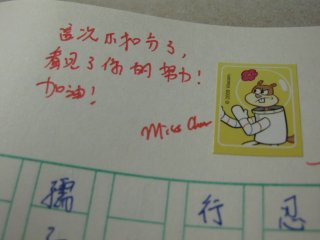 這次不扣分了,
看見了你的努力!
加油!
Miss Chan
© 2009 Viacom
孺
行
忍